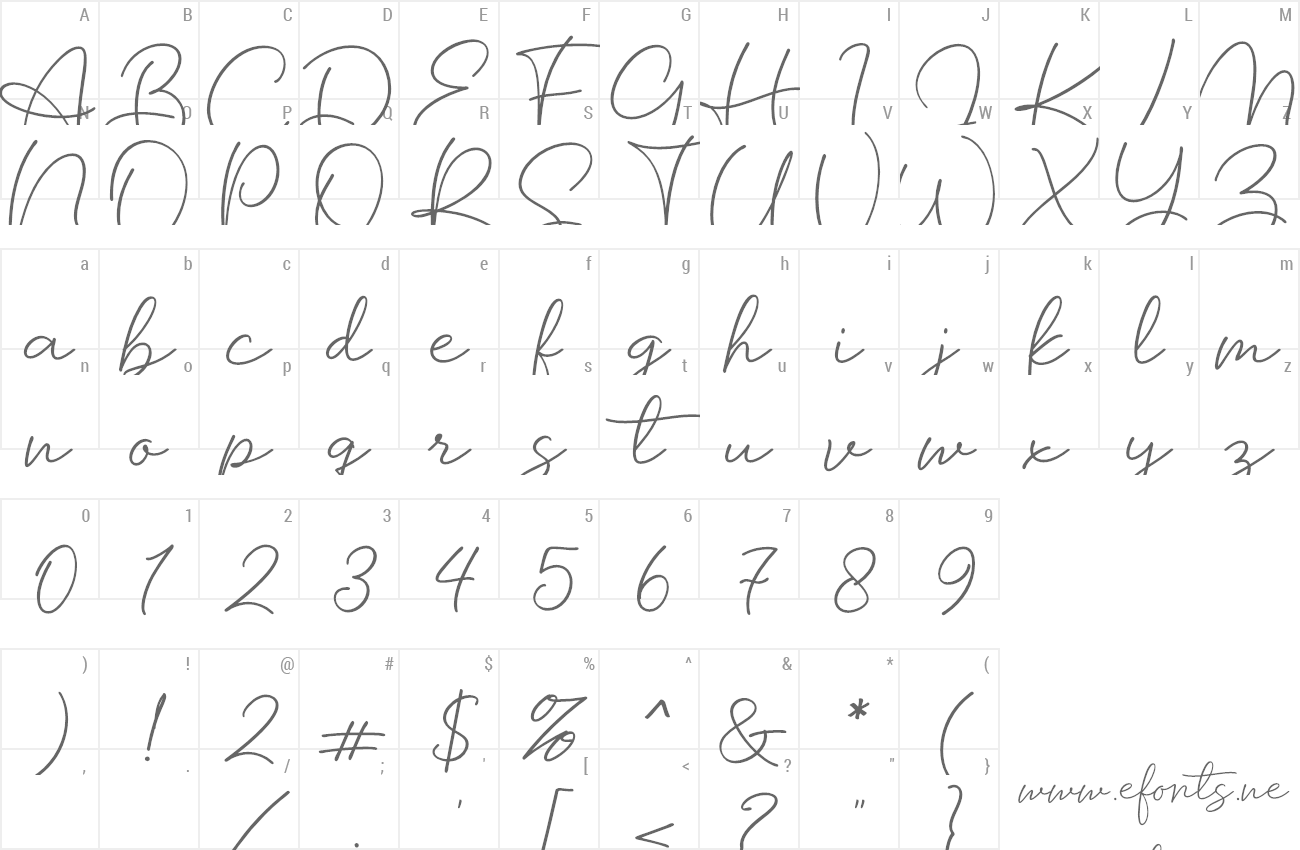 A B C D E F G H I J K L M
A B C D E F G H I J K L M
N O P Q R S T U V W X Y Z
N O P Q R S T U V W X Y Z
a b c d e f g h i j k l m
a b c d e f g h i j k l m
n o p q r s t u v w x y z
n o p q r s t u v w x y z
0 1 2 3 4 5 6 7 8 9
0 1 2 3 4 5 6 7 8 9
) ! @ # $ % ^ & * (
) ! 2 # $ % ^ & * (
, . / ; ' [ < ? " }
/ ; ' [ < ? " }
www.efonts.ne